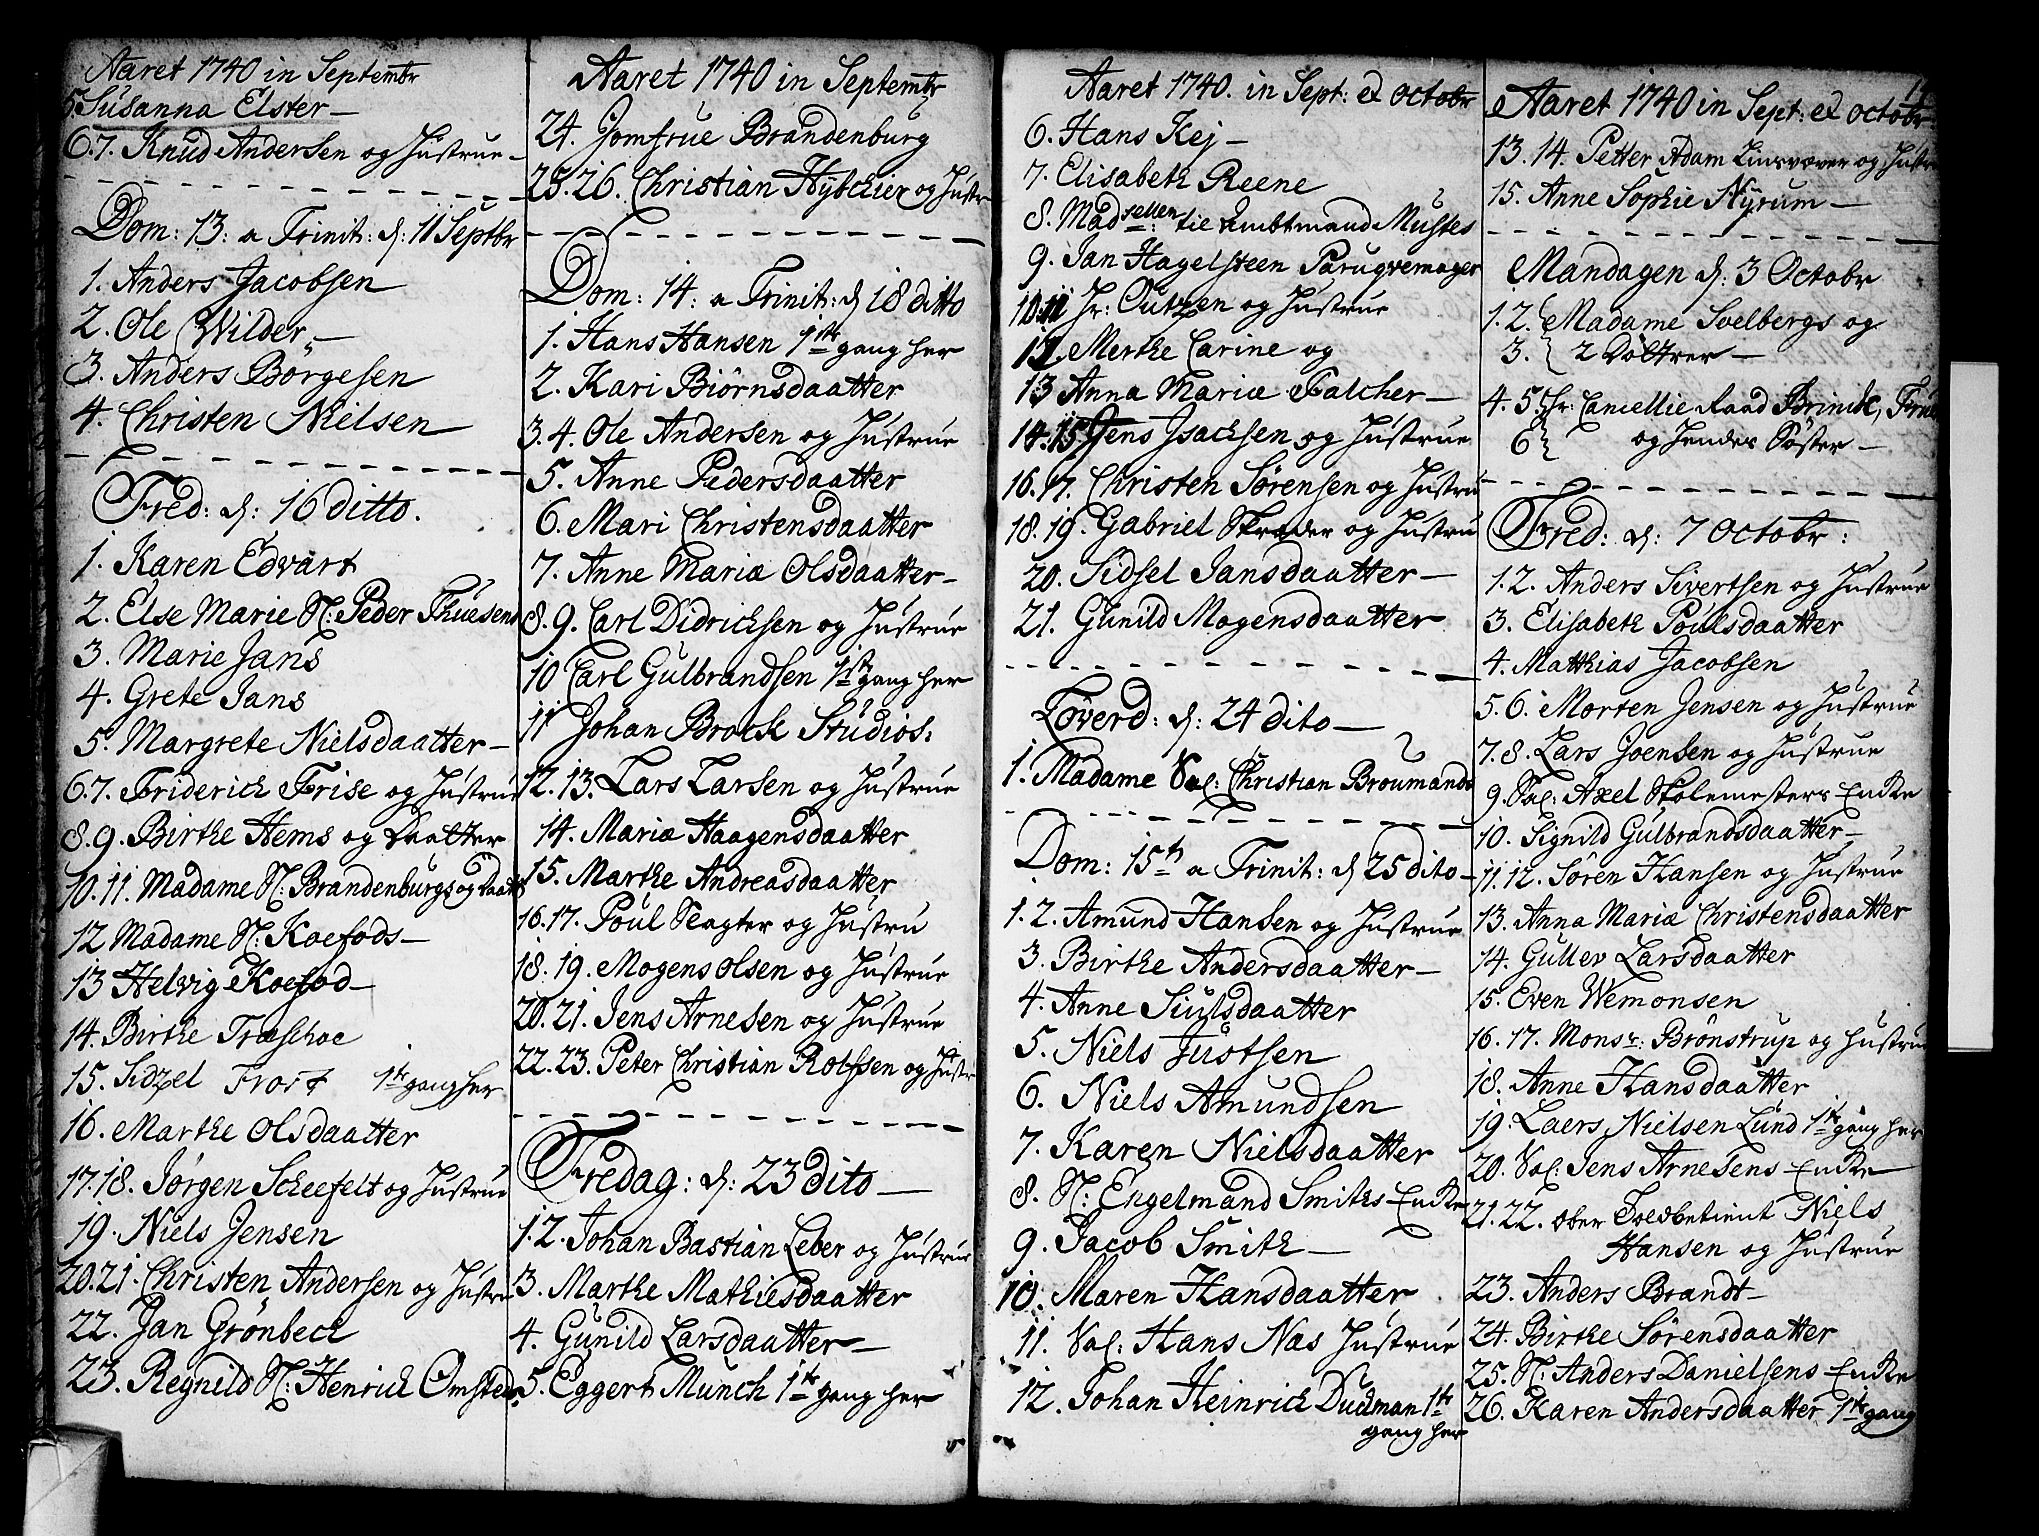 Aaret 1740 in Septembr
5. Susanna Elster
6.7. Knud Andersen og Hustrue
Dom: 13: a Trinit: d: 11 Septbr
1. Anders Jacobsen
2. Ole Wilder
3. Anders Börgesen
4. Christen Nielsen
Fred: d: 16 ditto.
1. Karen Edvart
2. Else Marie Sl: Peder Thuesens
3. Marie Jans
4. Grete Jans
5. Margrete Nielsdaatter
6.7. Friderich Frise og Hustrue
8.9. Birthe Hems og Daatter
10.11. Madame Sl: Brandenburgs og Daatt
12 Madame Sl: Koefods
13 Helvig Koefod
14. Birthe Træschoe
15. Sidzel Frost 1ste gang her
16. Marthe Olsdaatter
17.18. Jørgen Scheefelt og Hustrue
19. Niels Jensen
20.21. Christen Andersen og Hustru
22. Jan Grönbech
23. Regnild Sl: Henrich Omsteds
Aaret 1740 in Septembr
24. Jomfrue Brandenburg
25.26. Christian Hybchier og Hustr
Dom: 14: a Trinit: d 18 ditto
1. Hans Hansen 1ste gang her
2. Kari Biörnsdaatter
3.4. Ole Andersen og Hustrue
5. Anne Pedersdaatter
6. Mari Christensdaatter
7. Anne Maria Olsdaatter
8.9. Carl Didrichsen og Hustrue
10 Carl Gulbrandsen 1ste gang her
11 Johan Brock Studios:
12.13. Lars Larsen og Hustrue
14. Maria Haagensdaatter
15. Marthe Andreasdaatter
16.17. Poul Slagter og Hustru
18.19. Mogens Olsen og Hustrue
20.21. Jens Arnesen og Hustrue
22.23. Peter Christian Rolfsen og Hustr
Fredag: d: 23 dito
1.2. Johan Bastian Leber og Hustrue
3. Marthe Mathiesdaatter
4. Gunild Larsdaatter
5. Eggert Munch 1ste gang her
Aaret 1740. in Sept: et Octobr
6. Hans Kej
7. Elisabeth Reene
8. Madsellen: til Ambtmand Mustes
9. Jan Hagelsteen Parugvemager
10.11 Hr: Outzen og Hustrue
12. Merthe Carine og
13 Anna Maria Falcher
14.15 Jens Isachsen og Hustrue
16.17. Christen Sörensen og Hustru
18.19. Gabriel Skræder og Hustru
20. Sidsel Jansdaatter
21. Gunild Mogensdaatter
Löverd: d: 24 dito
1. Madame Sal: Christian Broumands
Dom: 15de a Trinit: d 25 dito
1.2. Amund Hansen og Hustrue
3. Birthe Andersdaatter
4. Anne Siulsdaatter
5. Niels Justsen
6. Niels Amundsen
7. Karen Nielsdaatter
8. Sl: Engelmand Smiths Enke
9. Jacob Smith
10. Maren Hansdaatter
11. Sal: Hans Næs Hustrue
12. Johan Heinrich Dudman 1ste
gang her
Aaret 1740 in Sept: et Octobr
13.14. Petter Adam Linsvæver og Hustr
15. Anne Sophie Nyrum
Mandagen d: 3 Octobr
1.2. Madame Svelbergs og
3. 2 Döttrer
4.5. Hr: Cancellie Raad Brinck, Frue
6 og Hendes Söster
Fred: d: 7 Octobr:
1.2. Anders Sivertsen og Hustrue
3. Elisabeth Poulsdaatter
4. Matthias Jacobsen
5.6. Morten Jensen og Hustrue
7.8. Lars Joensen og Hustrue
9. Sal: Axel Skolemesters Enke
10. Signild Gulbrandsdaatter
11.12. Sören Hansen og Hustrue
13. Anna Maria Christensdaatter
14. Gullev Larsdaatter
15. Even Wemonsen
16.17. Monsr: Brönstrup og Hustrue
18. Anne Hansdaatter
19. Laers Nielsen Lund 1ste gang her
20. Sal: Jens Arnesens Enke
21.22. ober Toldbetient Niels
Hansen og Hustrue
23. Anders Brandt
24. Birthe Sörensdaatter
25. Sl: Anders Danielsens Enke
26. Karen Andersdaatter 1ste gang